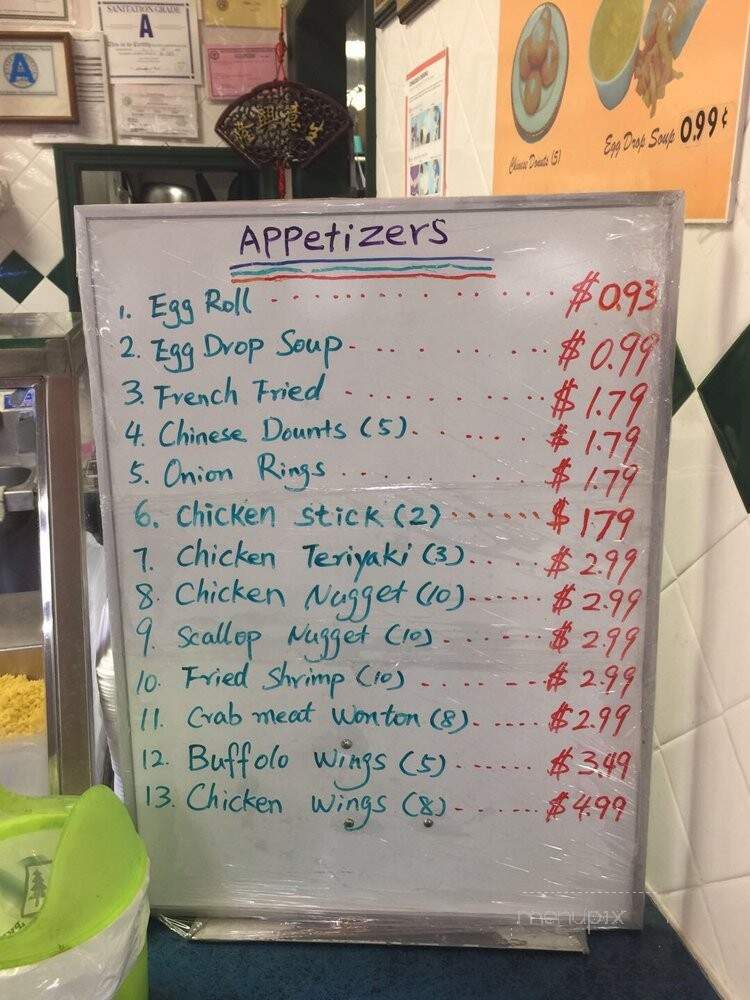 SANITATION GRADE
A
A
Chinese Donuts (5)
Egg Drop Soup 0.99¢
Appetizers
1. Egg Roll $0.93
2. Egg Drop Soup $0.99
3. French Fried $1.79
4. Chinese Dounts (5) $1.79
5. Onion Rings $1.79
6. Chicken Stick (2) $1.79
7. Chicken Teriyaki (3) $2.99
8. Chicken Nugget (10) $2.99
9. Scallop Nugget (10) $2.99
10. Fried Shrimp (10) $2.99
11. Crab meat Wonton (8) $2.99
12. Buffolo Wings (5) $3.49
13. Chicken Wings (8) $4.99
menupix